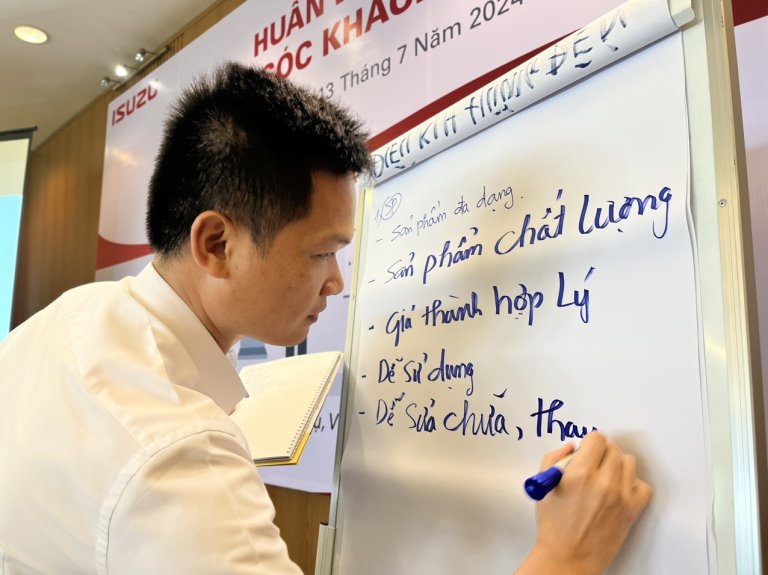 HUẤN
SÓC KHÁCH
13 Tháng 7 Năm 2024
ISUZU
ĐIỆN KIA THỊNH ĐẾN
1, SP
- Sản phẩm đa dạng.
- Sản phẩm chất lượng
- Giá thành hợp Lý
- Dễ sử dụng
- Dễ sửa chữa, thay